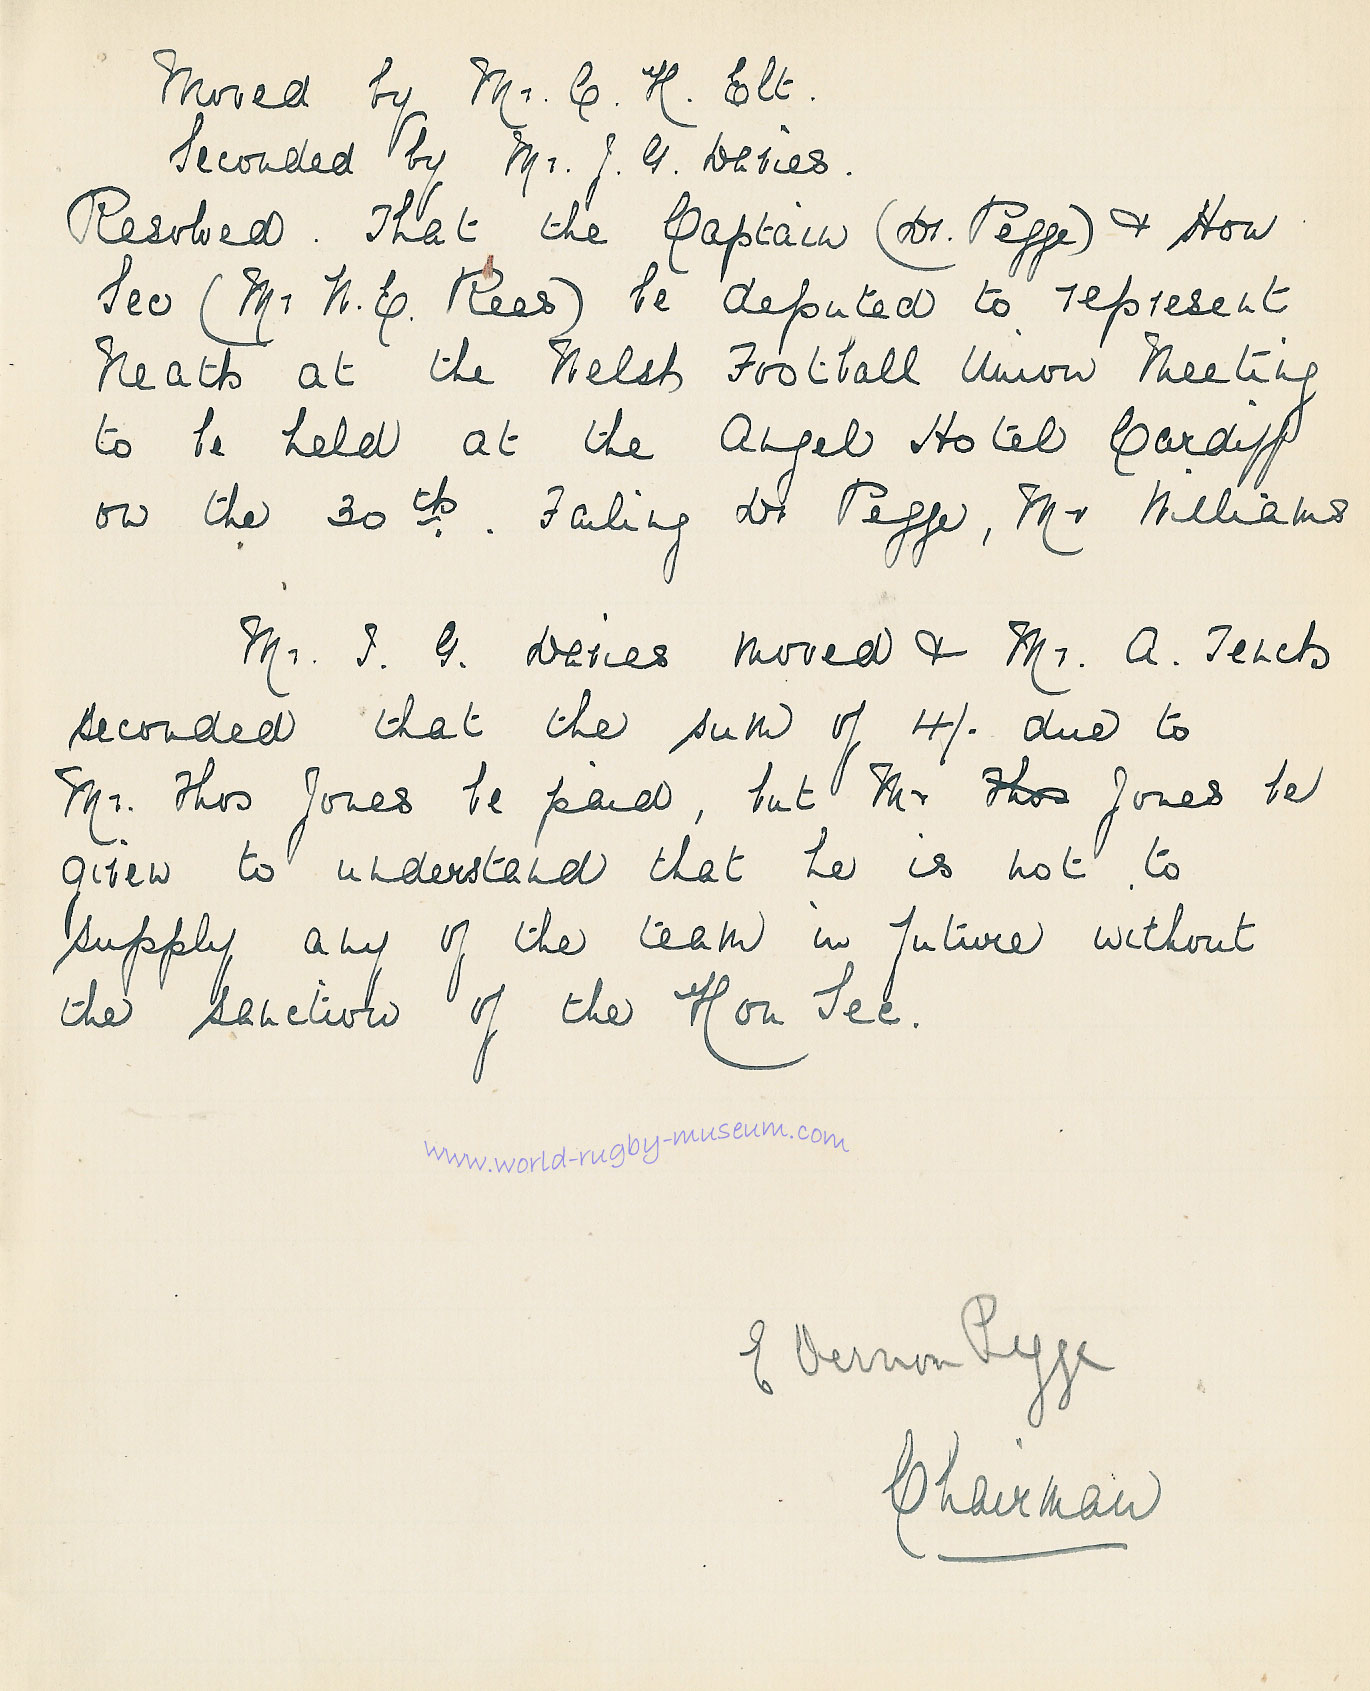 Moved by Mr. C. H. Elt.
Seconded by Mr. J. G. Davies.
Resolved. That the Captain (Dr. Pegge) & Hon
Sec (Mr W. E. Rees) be deputed to represent
Neath at the Welsh Football Union Meeting
to be held at the Angel Hotel Cardiff
on the 30th. Failing Dr Pegge, Mr Williams
Mr. J. G. Davies moved & Mr. A. Tench
seconded that the sum of 4/- due to
Mr. Thos Jones be paid, but Mr Thos Jones be
given to understand that he is not to
supply any of the team in future without
the sanction of the Hon Sec.
www.world-rugby-museum.com
E Vernon Pegge
Chairman